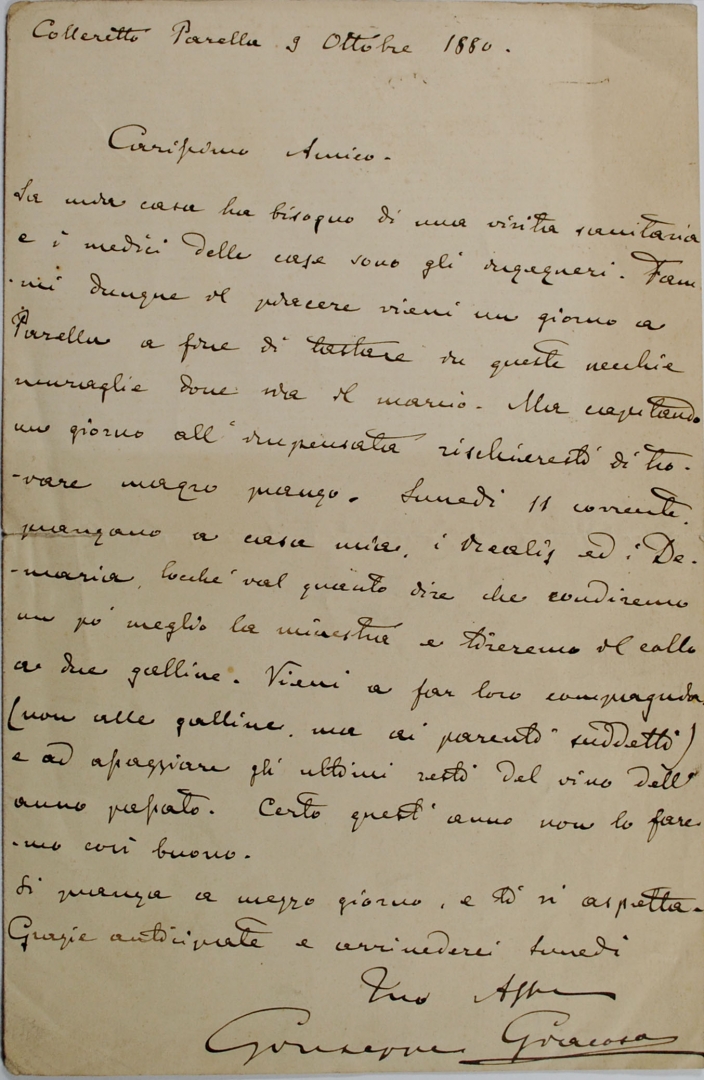 Colleretto Parella 9 Ottobre 1880.
Carissimo Amico.
La mia casa ha bisogno di una visita sanitaria
e i medici delle case sono gli ingegneri. Fam
-mi dunque il piacere vieni un giorno a
Parella a fine di tastare in queste vecchie
muraglie dove sia il marcio. Ma capitando
un giorno all'impensata rischieresti di tro-
-vare magro pranzo. Lunedì 11 corrente,
pranzano a casa mia, i Realis ed i De-
-maria, locché val quanto dire che condiremo
un po' meglio la minestra e tireremo il collo
a due galline. Vieni a far loro compagnia,
(non alle galline, ma ai parenti suddetti)
e ad assaggiare gli ultimi resti del vino dell'
anno passato. Certo quest'anno non lo fare
-mo così buono.
Si pranza a mezzo giorno, e ti si aspetta.
Grazie anticipate e arrivederci Lunedì
Tuo Affmo
Giuseppe Giacosa